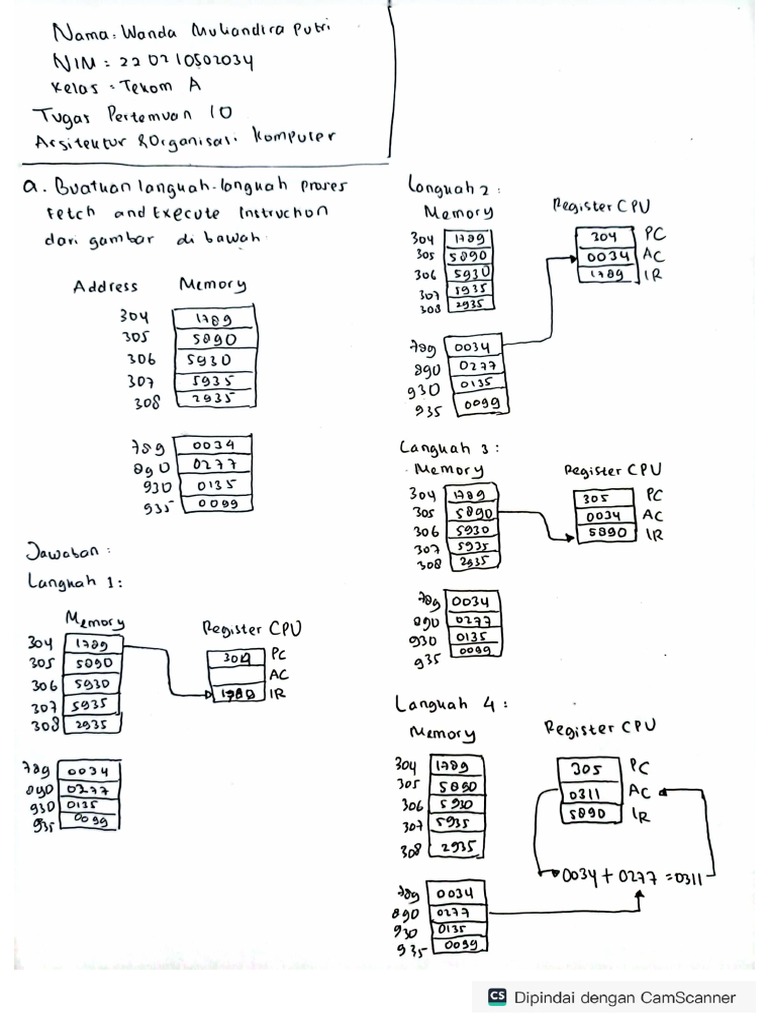 Nama: Wanda Muliandira Putri
NIM : 220210502034
Kelas : Tekom A
Tugas Pertemuan 10
Arsitektur & Organisasi Komputer
a. Buatkan langkah-langkah proses
Fetch and Execute Instruction
dari gambar di bawah
Address Memory
304 1789
305 5890
306 5930
307 5935
308 2935
789 0034
890 0277
930 0135
935 0099
Jawaban :
Langkah 1 :
Memory
Register CPU
304 1789
305 5890
306 5930
307 5935
308 2935
304 PC
AC
1789 IR
789 0034
890 0277
930 0135
935 0099
Langkah 2 :
Memory
Register CPU
304 1789
305 5890
306 5930
307 5935
308 2935
304 PC
0034 AC
1789 IR
789 0034
890 0277
930 0135
935 0099
Langkah 3 :
Memory
Register CPU
304 1789
305 5890
306 5930
307 5935
308 2935
305 PC
0034 AC
5890 IR
789 0034
890 0277
930 0135
935 0099
Langkah 4 :
Memory
Register CPU
304 1789
305 5890
306 5930
307 5935
308 2935
305 PC
0311 AC
5890 IR
0034 + 0277 = 0311
789 0034
890 0277
930 0135
935 0099
CS Dipindai dengan CamScanner